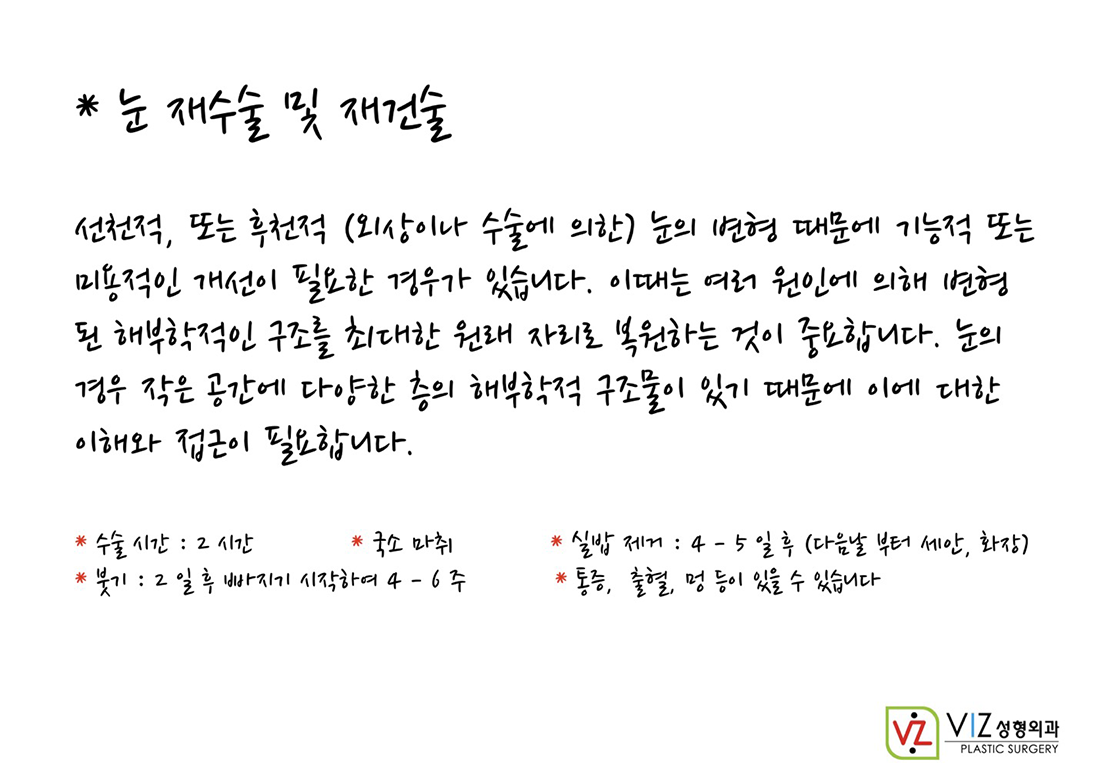 * 눈 재수술 및 재건술
선천적, 또는 후천적 (외상이나 수술에 의한) 눈의 변형 때문에 기능적 또는
미용적인 개선이 필요한 경우가 있습니다. 이때는 여러 원인에 의해 변형
된 해부학적인 구조를 최대한 원래 자리로 복원하는 것이 중요합니다. 눈의
경우 작은 공간에 다양한 층의 해부학적 구조물이 있기 때문에 이에 대한
이해와 접근이 필요합니다.
* 수술 시간 : 2 시간 * 국소 마취 * 실밥 제거 : 4 - 5 일 후 (다음날 부터 세안, 화장)
* 붓기 : 2 일 후 빠지기 시작하여 4 - 6 주 * 통증, 출혈, 멍 등이 있을 수 있습니다
VZ VIZ 성형외과
PLASTIC SURGERY